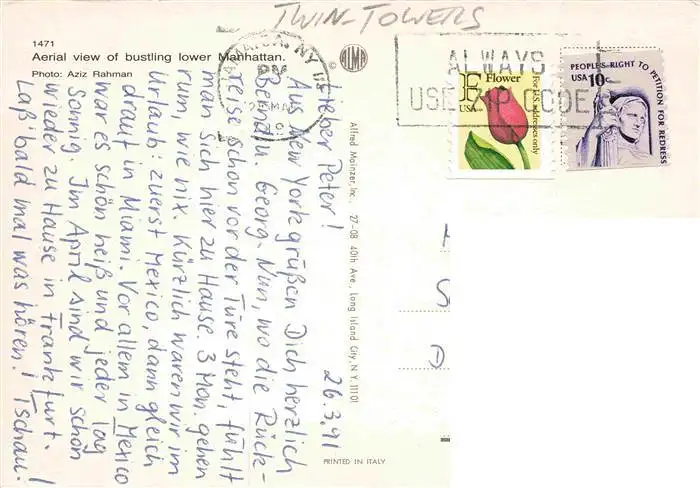 TWIN-TOWERS
1471
Aerial view of bustling lower Manhattan.
Photo: Aziz Rahman
©
NY
PM
ALWAYS
USE ZIP CODE
F Flower
USA
For U.S. addresses only
PEOPLE'S RIGHT TO PETITION FOR REDRESS
USA 10c
Alfred Mainzer, Inc., 27-08 40th Ave., Long Island City, N.Y. 11101
PRINTED IN ITALY
26.3.91
Lieber Peter!
Aus New York grüßen Dich herzlich
Bernd u. Georg. Nun, wo die Rück-
reise schon vor der Türe steht, fühlt
man sich hier zu Hause. 3 Mon. gehen
rum, wie nix. Kürzlich waren wir im
Urlaub: zuerst Mexico, dann gleich
drauf in Miami. Vor allem in Mexico
war es schön heiß und jeder Tag
sonnig. Im April sind wir schon
wieder zu Hause in Frankfurt.
Laß' bald mal was hören! Tschau!